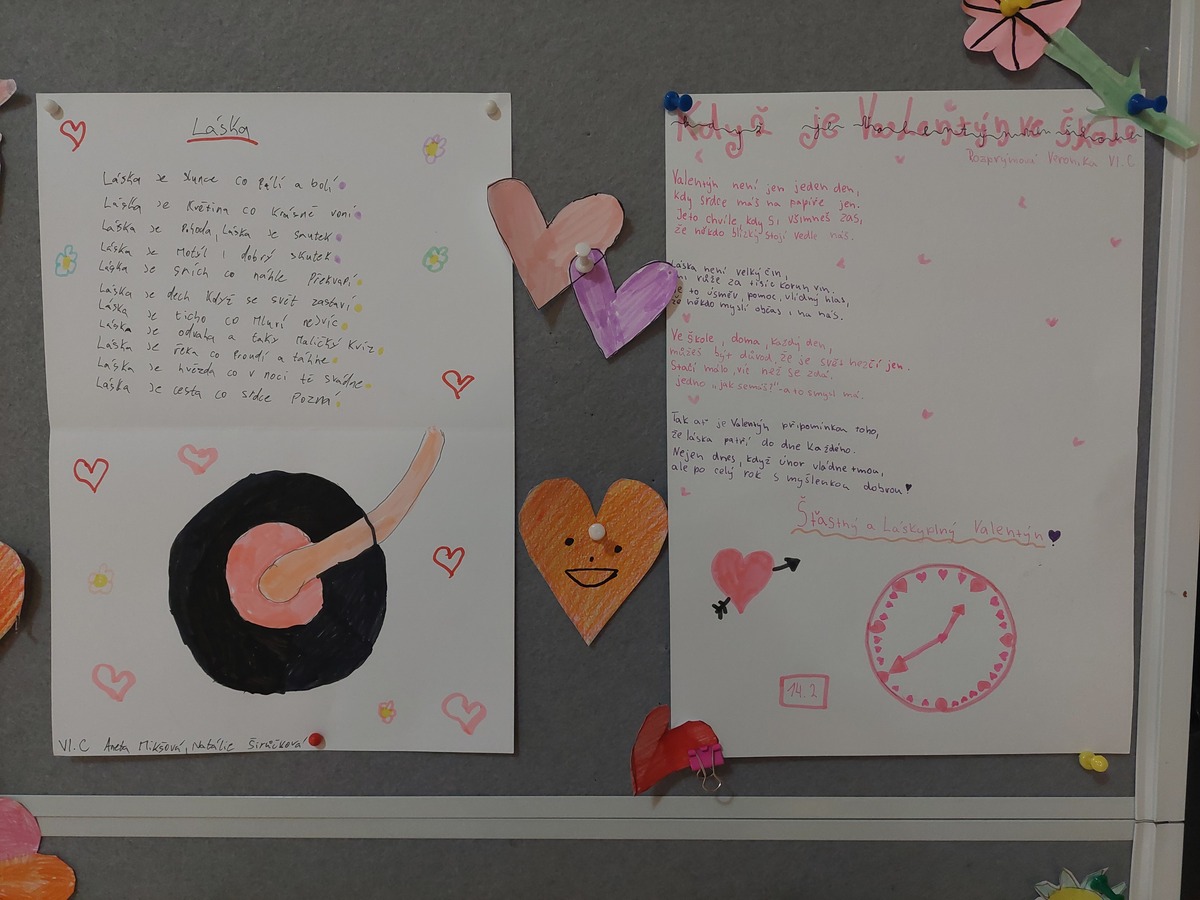 Láska
Láska je slunce co pálí a bolí
Láska je Květina co Krásně voní
Láska je Pohoda, Láska je smutek
Láska je Motýl i dobrý skutek
Láska je smích co náhle Překvapí
Láska je dech Když se svět zastaví
Láska je ticho co Mluví nejvíc
Láska je odvaha a taky Maličký Kvíz
Láska je řeka co Proudí a táhne
Láska je hvězda co v noci tě
Láska je cesta co srdce Pozná
VI.C Aneta Mikšová, Natálie
Když je Valentýn ve škole
Rozprýmová Veronika VI.C
Valentýn není jen jeden den,
kdy srdce máš na papíře jen.
Je to chvíle, kdy si všimneš zas,
že někdo blízký stojí vedle nás.
Láska není velký čin,
ani růže za tisíc korun vin.
Je to úsměv, pomoc, vlídný hlas,
že někdo myslí občas i na nás.
Ve škole, doma, každý den,
můžeš být důvod, že je svět hezčí jen.
Stačí málo, víc než se zdá.
jedno „jak se máš?" - a to smysl má.
Tak ať je Valentýn připomínkou toho,
že láska patří do dne každého.
Nejen dnes, když únor vládne tmou,
ale po celý rok s myšlenkou dobrou!
Šťastný a Láskyplný Valentýn
14.2